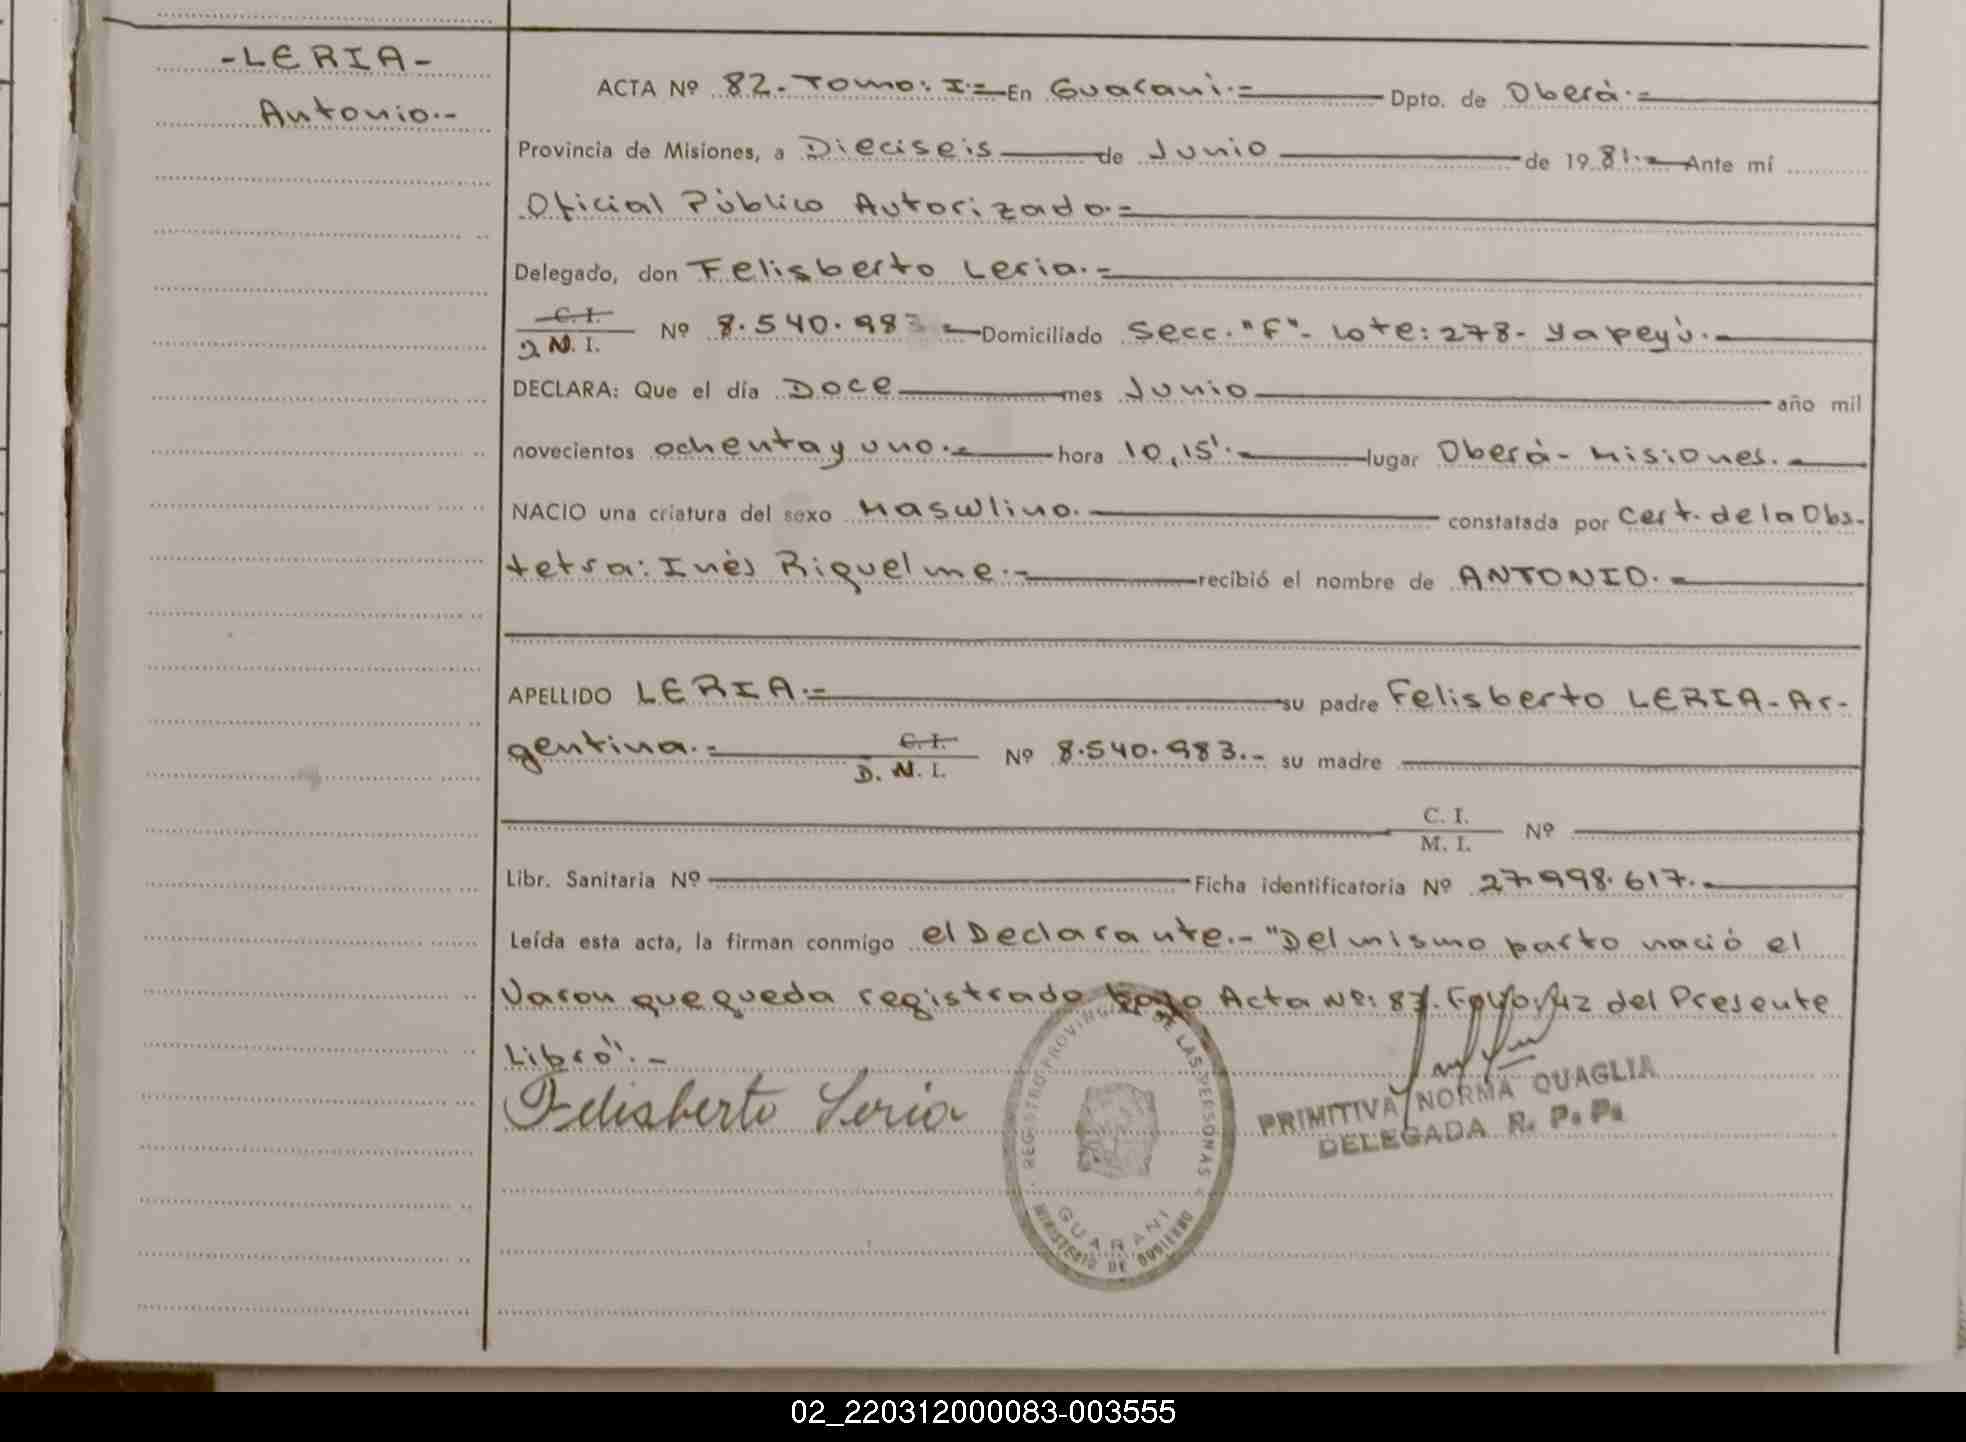 -LERIA-
Antonio.-
ACTA Nº 82.-Tomo: I.= En Guaraní.= Dpto. de Oberá.=
Provincia de Misiones, a Dieciseis de Junio de 1981.- Ante mí
Oficial Público Autorizado.=
Delegado, don Felisberto Leria.-
C. I.
D N. I. Nº 8.540.983.- Domiciliado Secc. "F"- Lote: 278- Yapeyú.-
DECLARA: Que el día Doce mes Junio año mil
novecientos ochenta y uno.- hora 10,15'.- lugar Oberá- Misiones.-
NACIO una criatura del sexo Masculino.- constatada por Cert. de la Obs-
tetra: Inés Riquelme.- recibió el nombre de ANTONIO.-
APELLIDO LERIA.- su padre Felisberto LERIA- Ar-
gentina.- C. I.
D. N. I. Nº 8.540.983.- su madre
C. I.
M. I. Nº
Libr. Sanitaria Nº Ficha identificatoria Nº 27.998.617.-
Leída esta acta, la firman conmigo el Declarante.- "Del mismo parto nació el
Varon que queda registrado bajo Acta Nº: 83. Folio: 42 del Presente
Libro".-
Felisberto Leria
REGISTRO PROVINCIAL DE LAS PERSONAS
GUARANI
MINISTERIO DE GOBIERNO
PRIMITIVA NORMA QUAGLIA
DELEGADA R. P. P.
02_220312000083-003555